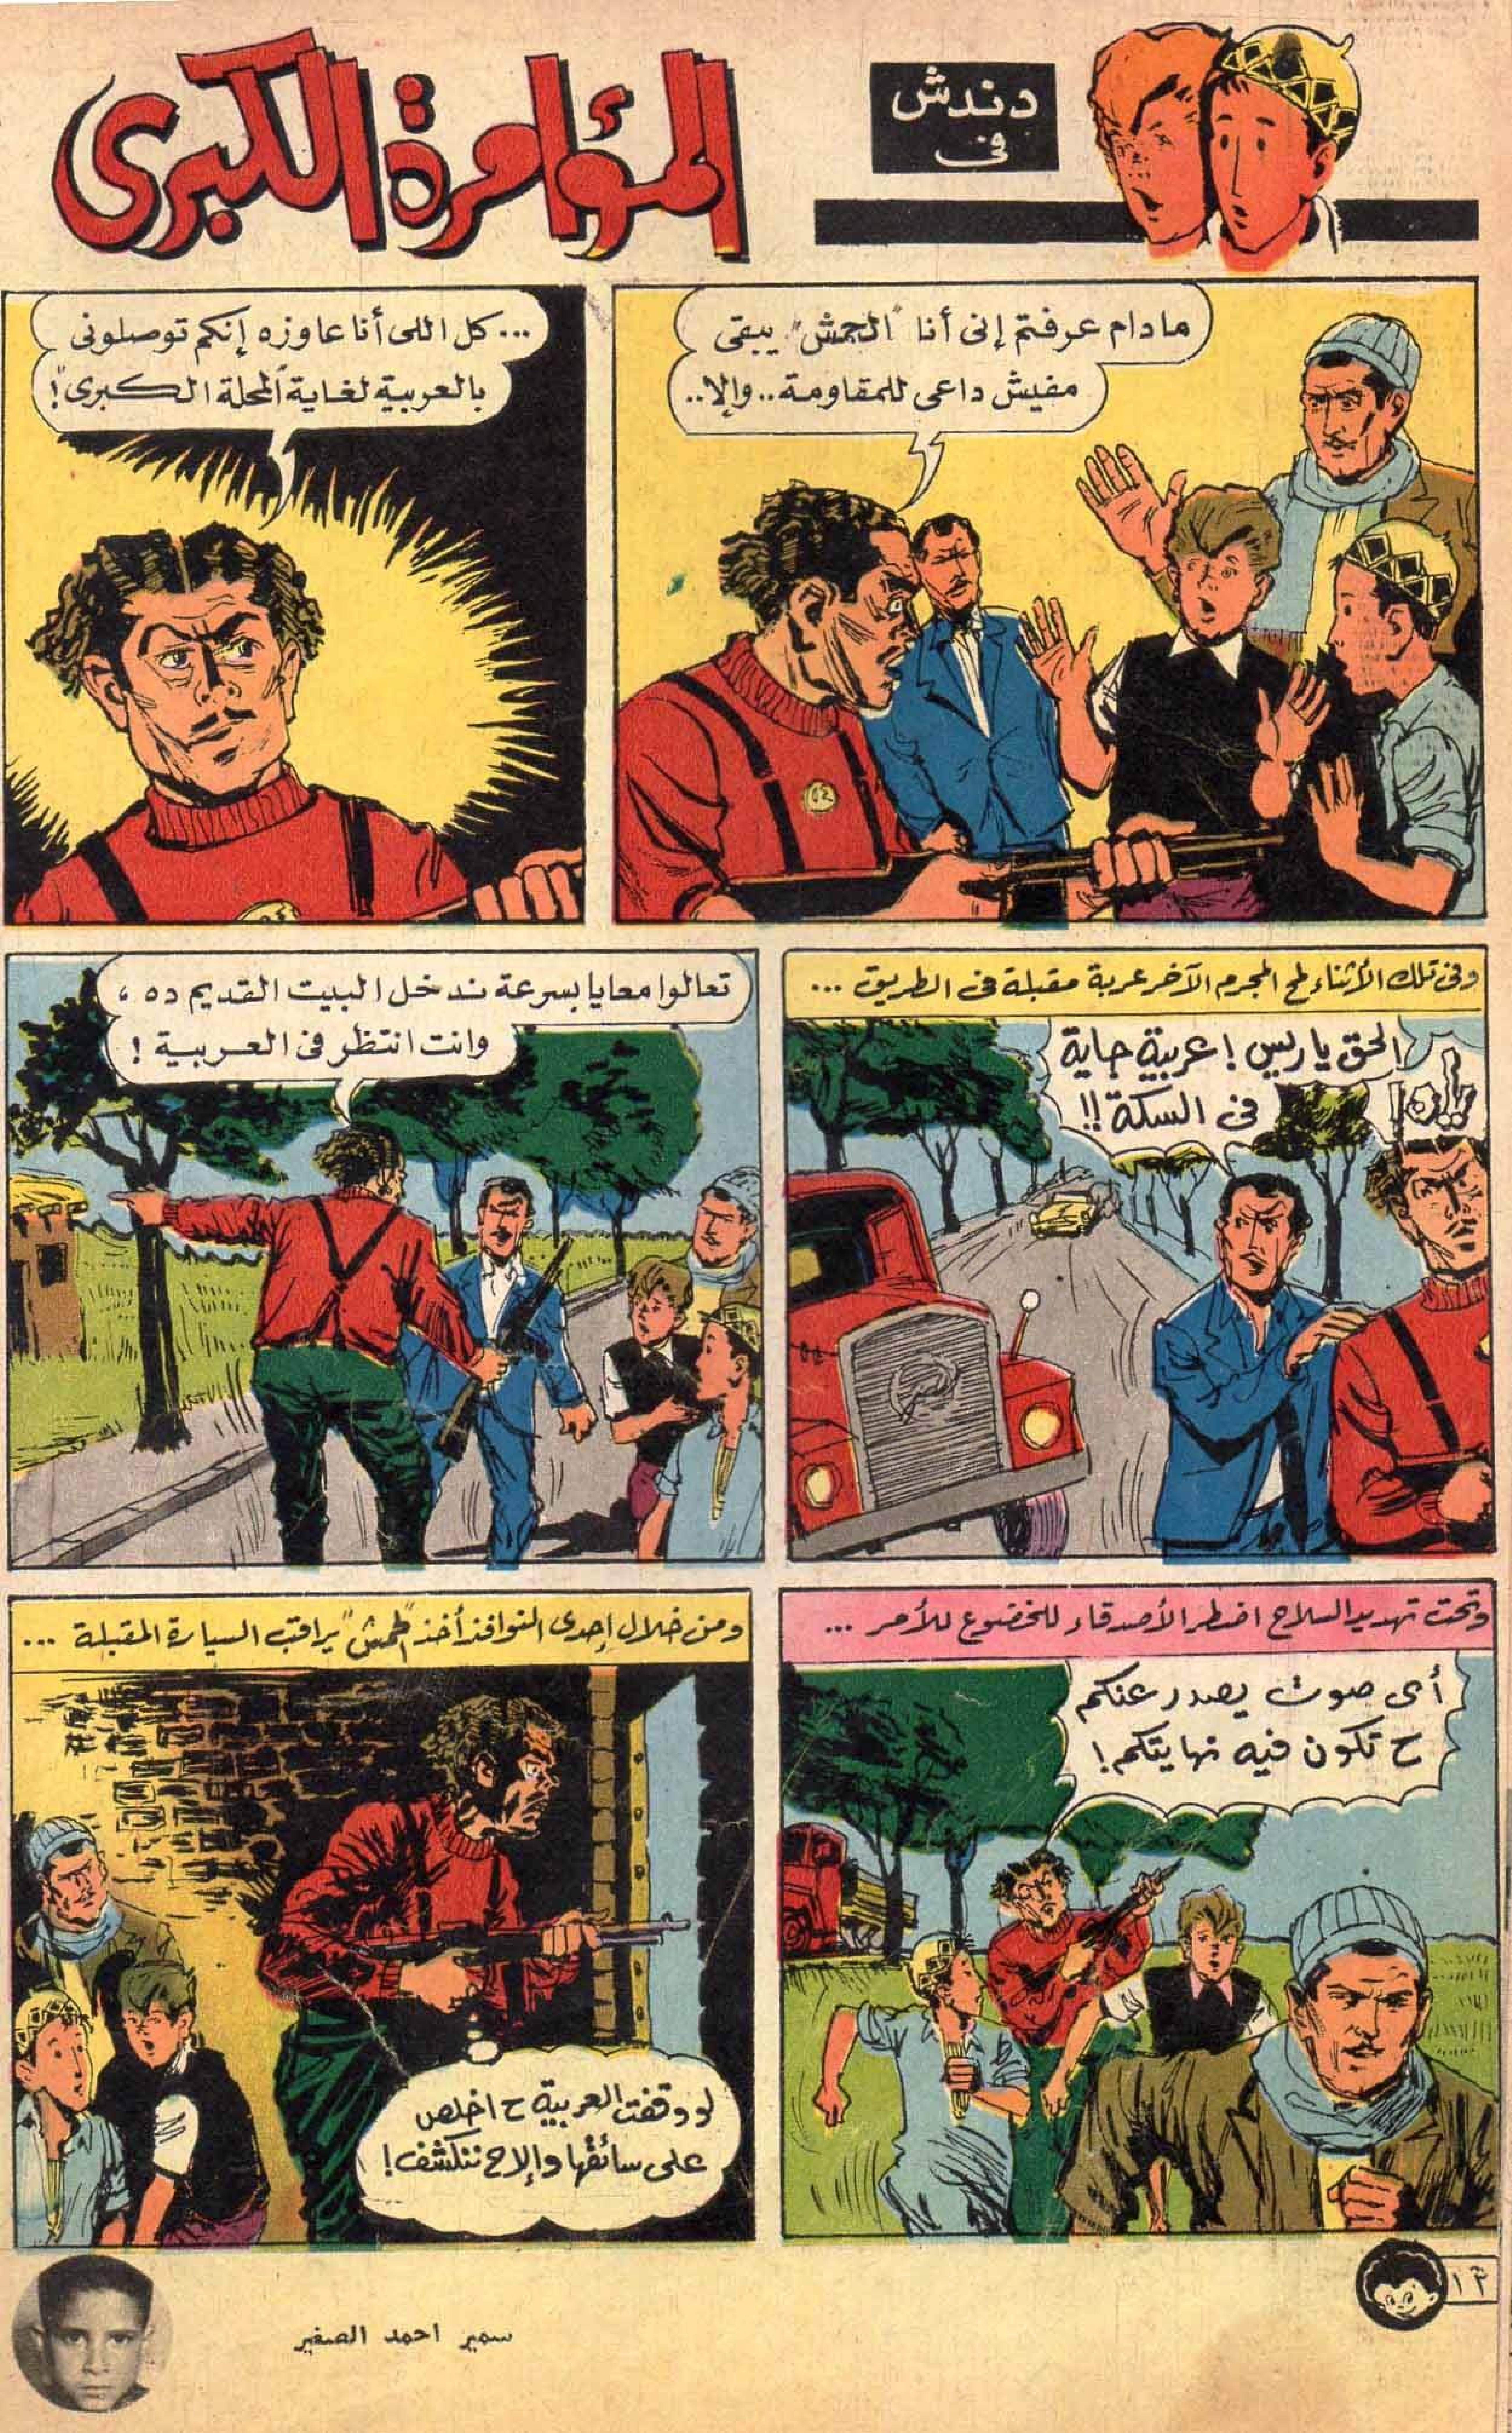 دندش
فى
المؤامرة الكبرى
مادام عرفتم إنى أنا "الجمش" يبقى
مفيش داعى للمقاومة.. وإلا..
... كل اللى أنا عاوزه إنكم توصلونى
بالعربية لغاية "المحلة الكبرى"!
وفى تلك الأثناء لمح المجرم الآخر عربة مقبلة فى الطريق ...
الحق ياريس! عربية جاية
فى السكة!!
تعالوا معايا بسرعة ندخل البيت القديم ده ،
وانت انتظر فى العربية !
وتحت تهديد السلاح اضطر الأصدقاء للخضوع للأمر ...
أى صوت يصدر عنكم
ح تكون فيه نهايتكم!
ومن خلال إحدى النوافذ أخذ "الجمش" يراقب السيارة المقبلة ...
لو وقفت العربية ح اخلص
على سائقها والا ح ننكشف!
١٢
سمير احمد الصغير